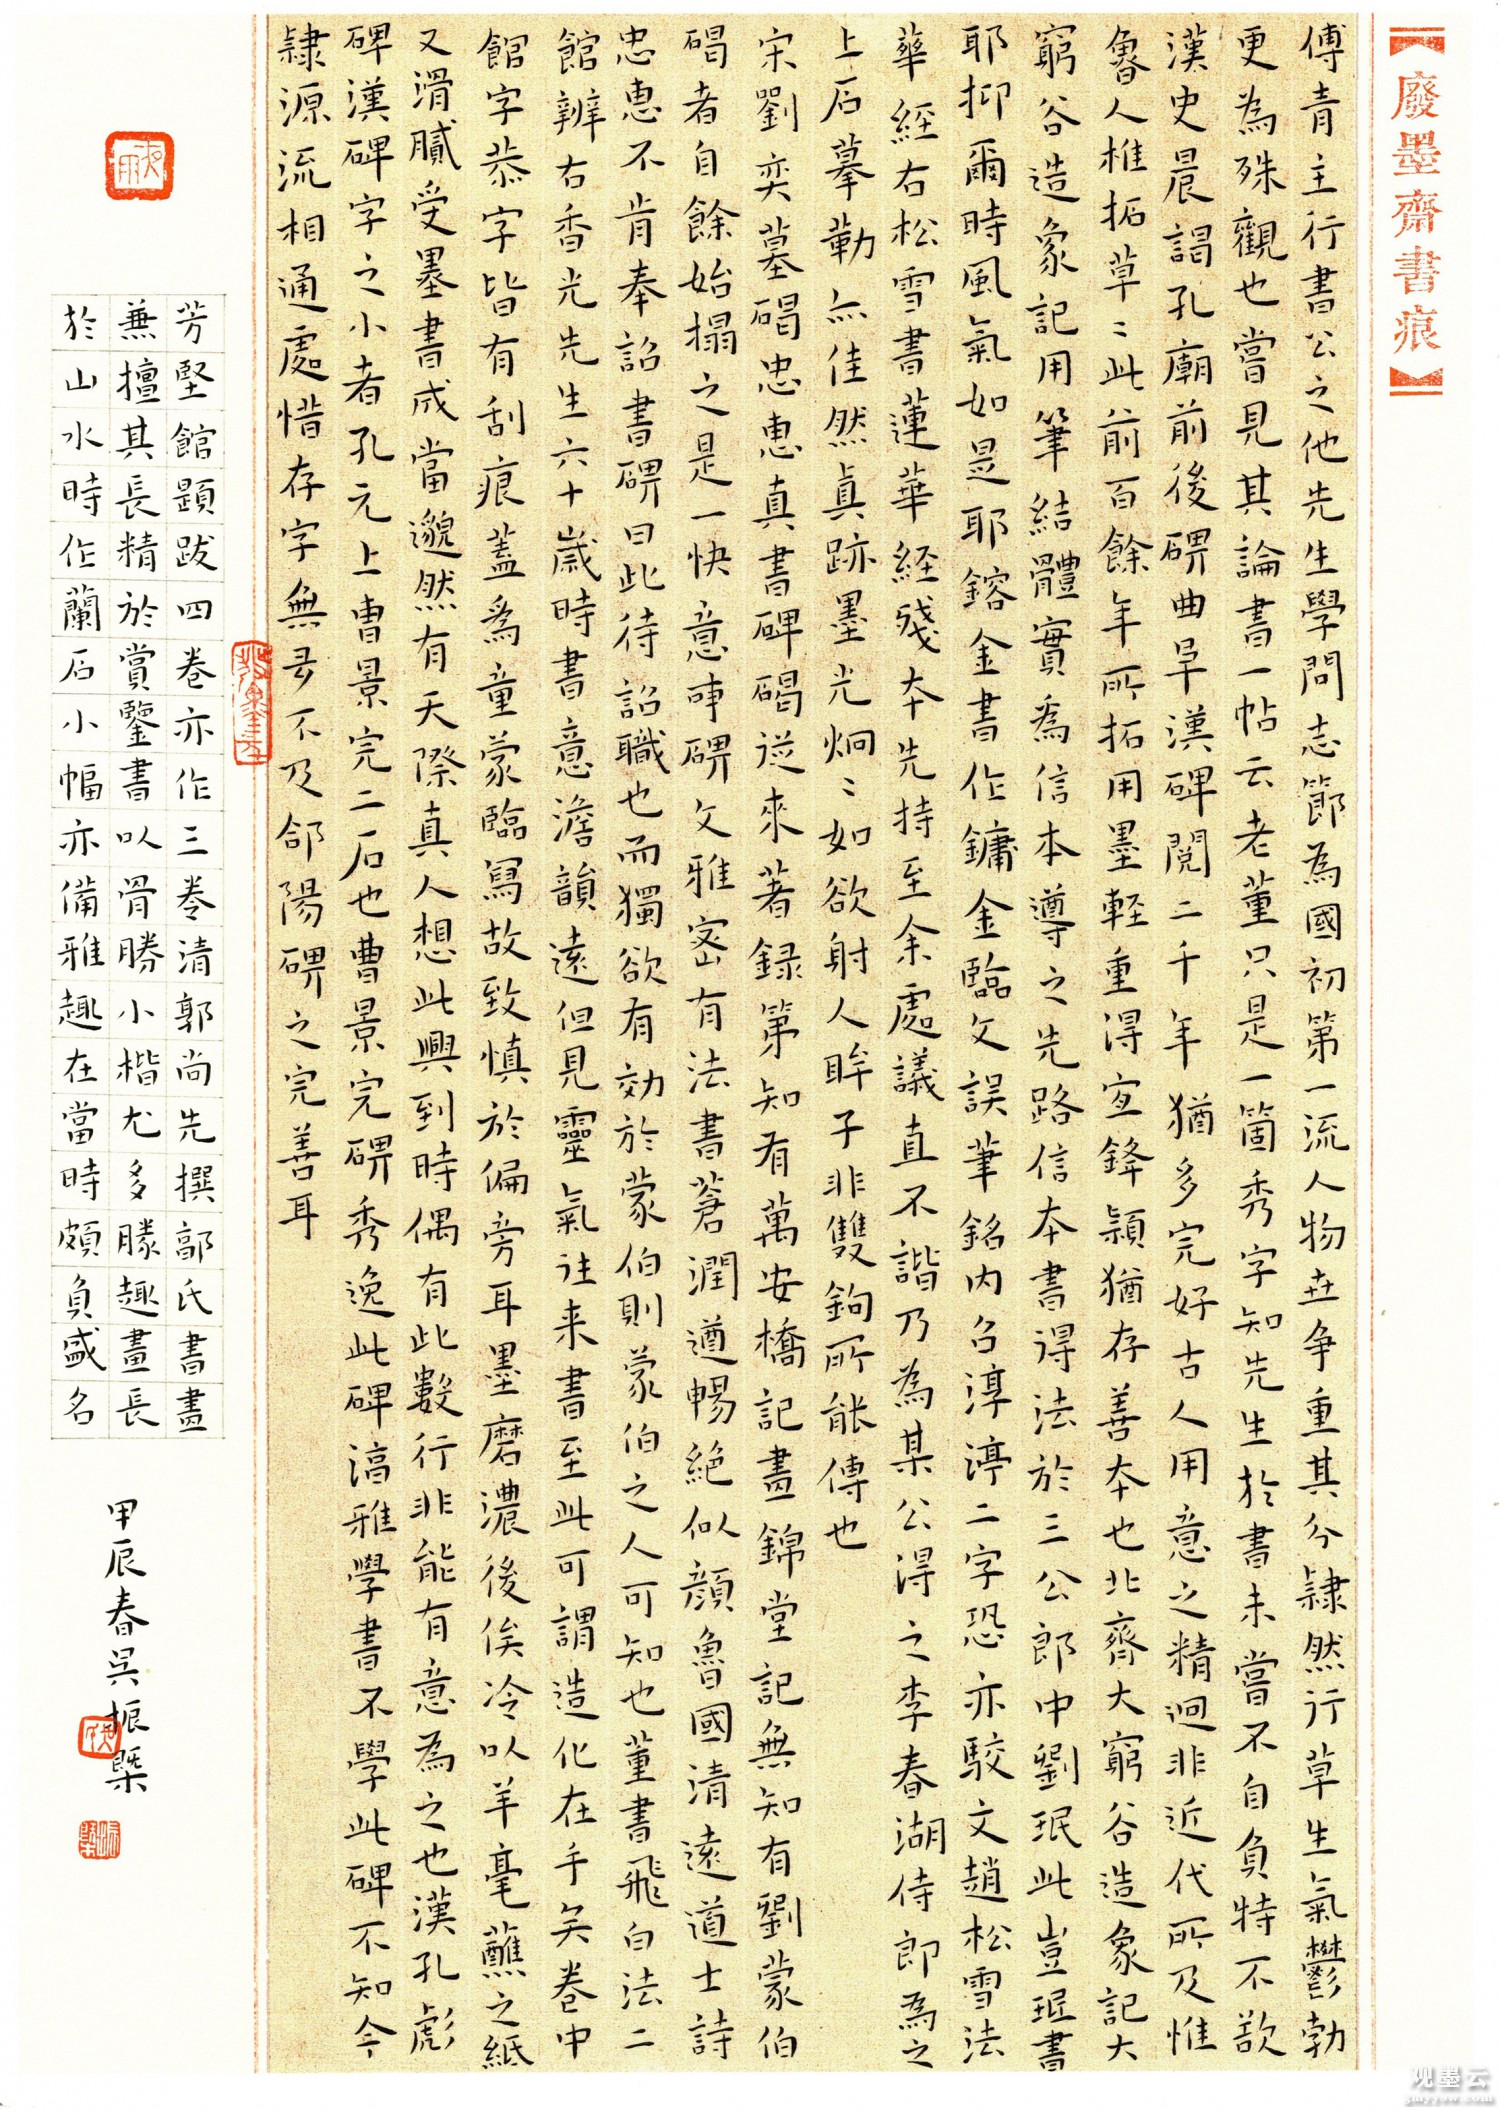 廢墨齋書痕
傅青主行書公之他先生學問志節為國初第一流人物世爭重其分隸然行草生氣鬱勃
更為殊觀也嘗見其論書一帖云老董只是一箇秀字知先生於書未嘗不自負特不欲
漢史晨謁孔廟前後碑曲阜漢碑閱二千年猶多完好古人用意之精迥非近代所及惟
魯人椎拓草〻此前百餘年所拓用墨輕重得宜鋒穎猶存善本也北齊大窮谷造象記大
窮谷造象記用筆結體實為信本導之先路信本書得法於三公郎中劉珉此豈珉書
耶抑爾時風氣如是耶鎔金書作鏞金臨文誤筆銘內名淳渟二字恐亦駮文趙松雪法
華經右松雪書蓮華經殘本先持至余處議直不諧乃為某公得之李春湖侍郎為之
上石摹勒亦佳然真跡墨光炯〻如欲射人眸子非雙鉤所能傳也
宋劉奕墓碣忠惠真書碑碣從來著録第知有萬安橋記晝錦堂記無知有劉蒙伯
碣者自餘始搨之是一快意事碑文雅密有法書蒼潤遒暢絕似顏魯國清遠道士詩
忠惠不肯奉詔書碑曰此待詔職也而獨欲有効於蒙伯則蒙伯之人可知也董書飛白法二
館辦右香光先生六十歲時書意澹韻遠但見靈氣往来書至此可謂造化在手矣卷中
館字恭字皆有刮痕蓋為童蒙臨寫故致慎於偏旁耳墨磨濃後俟冷以羊毫蘸之紙
又滑膩受墨書成當邈然有天際真人想此興到時偶有此數行非能有意為之也漢孔彪
碑漢碑字之小者孔元上曹景完二石也曹景完碑秀逸此碑澝雅學書不學此碑不知今
隸源流相通處惜存字無多不及郃陽碑之完善耳
芳堅館題跋四卷亦作三卷清郭尚先撰郭氏書畫
兼擅其長精於賞鑒書以骨勝小楷尤多勝趣畫長
於山水時作蘭石小幅亦備雅趣在當時頗負盛名
甲辰春吳振槼
观墨云